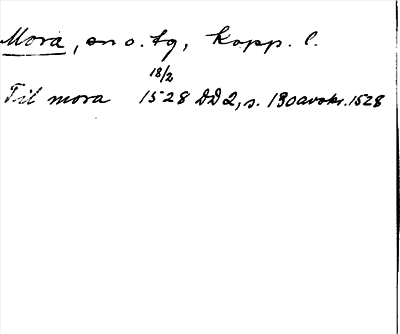 Mora, sn o. tg, Kopp. l.
18/2
Til mora 1528 DD2, s. 130 avskr. 1528